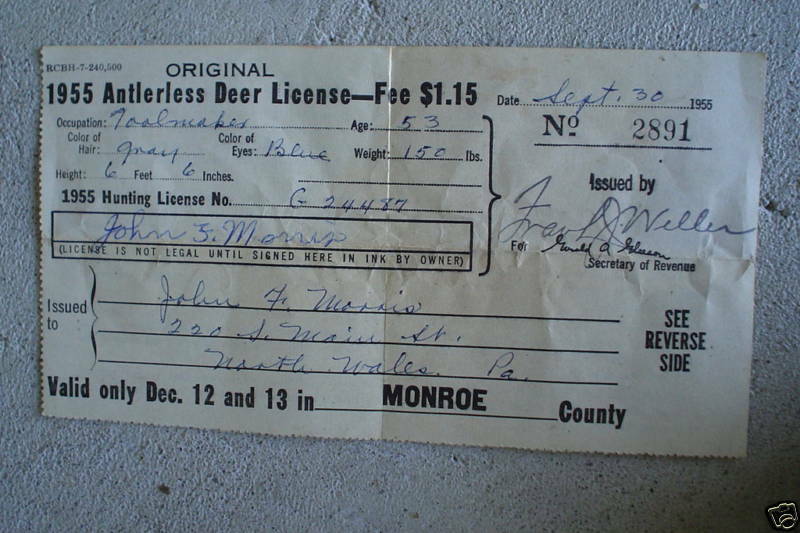 RCBH-7-240,500
ORIGINAL
1955 Antlerless Deer License—Fee $1.15
Date Sept. 30 1955
Occupation: Toolmaker Age: 53
Nº 2891
Color of Hair: Gray Color of Eyes: Blue Weight: 150 lbs.
Height: 6 Feet 6 Inches.
1955 Hunting License No. G 24487
Issued by
John F. Morris
(LICENSE IS NOT LEGAL UNTIL SIGNED HERE IN INK BY OWNER)
Weller
For Gerald A. Gleeson
Secretary of Revenue
Issued to
John F. Morris
220 S. Main St.
North Wales Pa.
SEE
REVERSE
SIDE
Valid only Dec. 12 and 13 in MONROE County